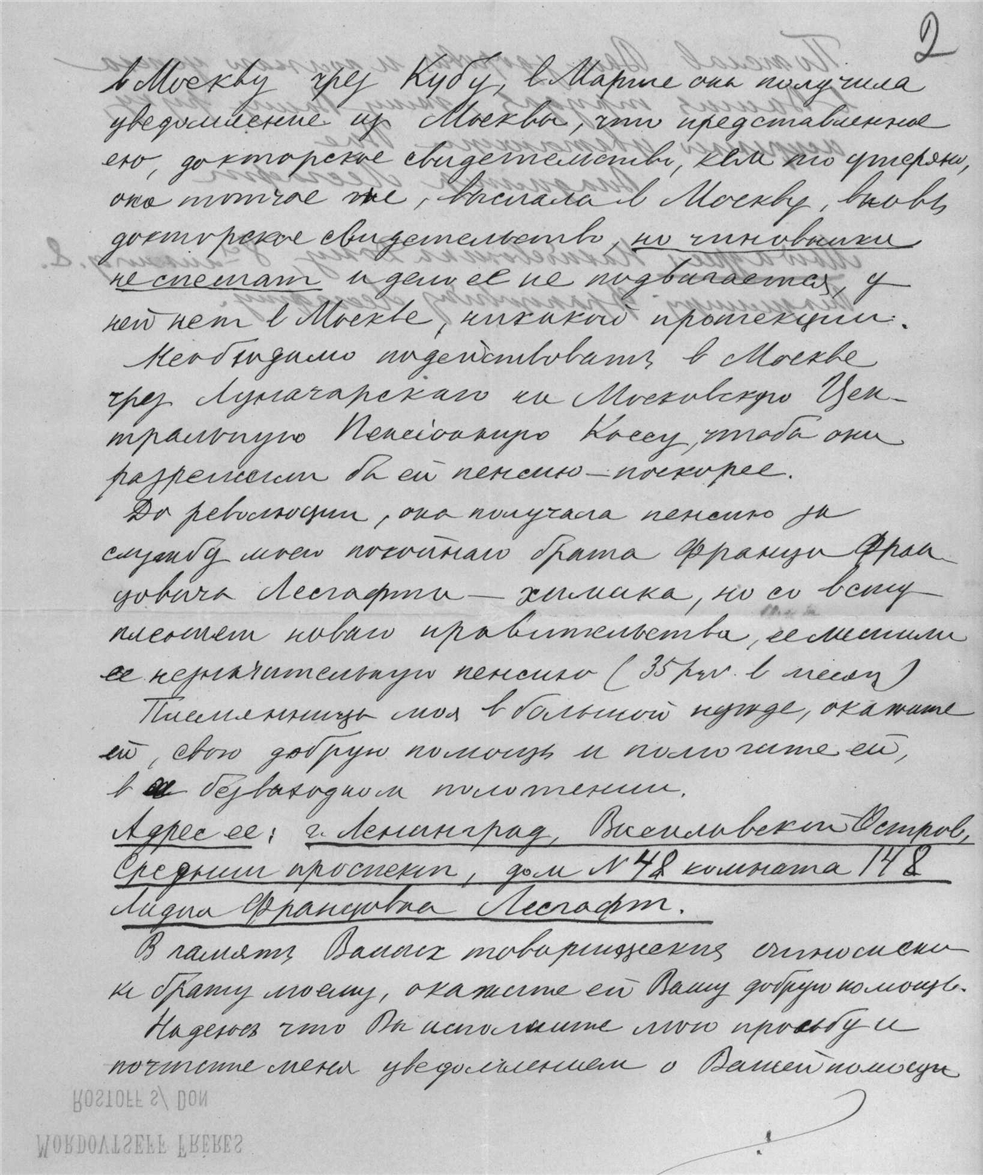 2
в Москву чрез Кубу, в Марте она получила
уведомление из Москвы, что представленное
ею, докторское свидетельство, кем то утеряно,
она тотчас же, выслала в Москву, вновь
докторское свидетельство, но чиновники
не спешат и дело ее не подвигается, у
ней нет в Москве, никакой протекции.
Необходимо подействовать в Москве
чрез Луначарскаго на Московскую Цен-
тральную Пенсіонную Кассу, чтобы они
разрешили бы ей пенсию – поскорее.
До революции, она получала пенсию за
службу моего покойнаго брата Франца Фран
цовича Лесгафта – химика, но со всту-
плением новаго правительства, ее лишили
ее незначительную пенсию (35 руб. в месяц)
Племянница моя в большой нужде, окажите
ей, свою добрую помощь и помогите ей,
в безвыходном положении.
Адрес ее: г. Ленинград, Василовской Остров,
Средний проспект, дом N 48 комната 148
Лидия Францовна Лесгафт.
В память Ваших товарищеских
к брату моему, окажите ей Вашу добрую помощь.
Надеюсь что Вы исполните мою просьбу и
почтите меня уведомлением о Вашей помощи
ROSTOFF S/ DON
MORDOVTSEFF FRÈRES